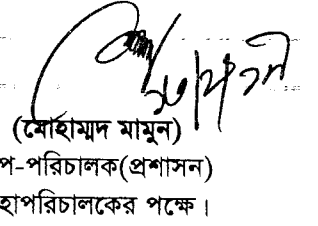 (মোহাম্মদ মামুন)
প-পরিচালক(প্রশাসন)
হাপরিচালকের পক্ষে।